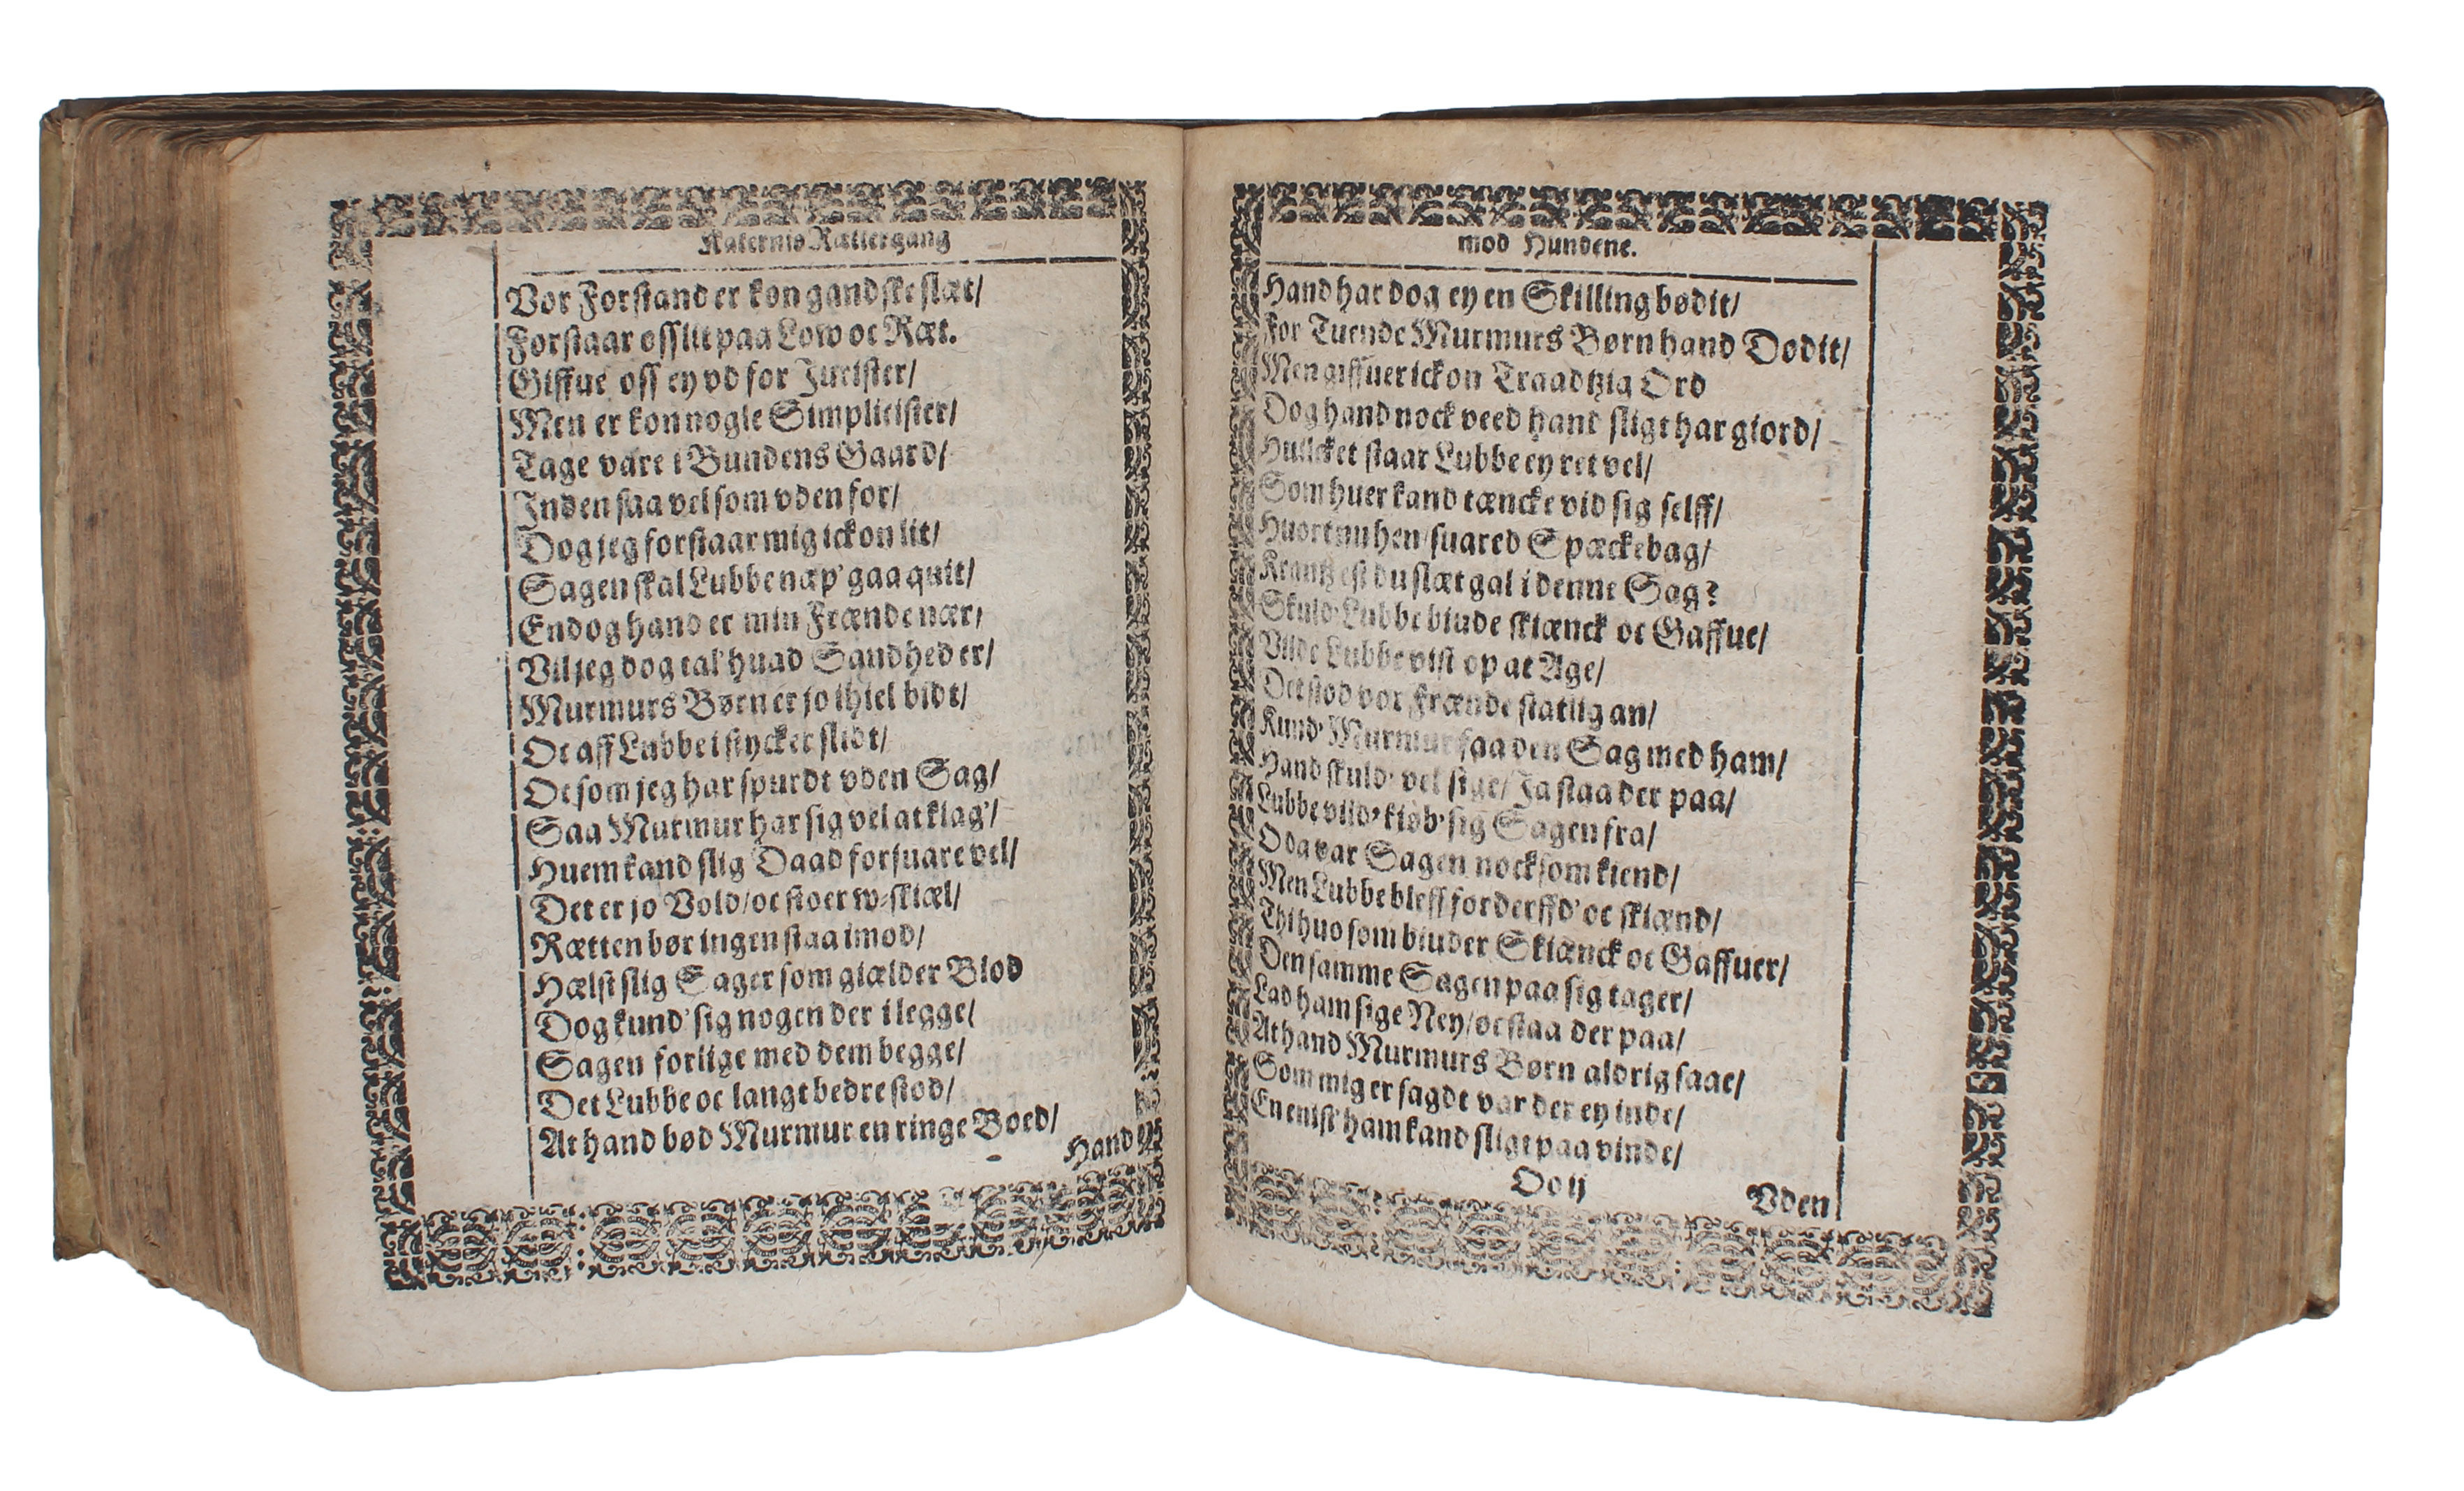 Katernis Rættergang
Vor Forstand er kon gandske slæt/
Forstaar oss lit paa Low oc Ræt.
Giffue oss ey vd for Jurister/
Men er kon nogle Simplicister/
Tage vare i Bundens Gaard/
Inden saa vel som vden for/
Dog jeg forstaar mig ickon lit/
Sagen skal Lubbe næp' gaa quit/
Endog hand er min Frænde nær/
Vil jeg dog tal' huad Sandhed er/
Murmurs Børn er jo ihiel bidt/
Oc aff Lubbe i stycker slidt/
Oc som jeg har spurdt vden Sag/
Saa Murmur har sig vel at klag'/
Huem kand slig Daad forsuare vel/
Det er jo Vold/ oc stoer w-skiæl/
Rætten bør ingen staa imod/
Hælst slig Sager som giælder Blod
Dog kund' sig nogen der i legge/
Sagen forlige med dem begge/
Det Lubbe oc langt bedre stod/
At hand bød Murmur en ringe Boed/
Hand
mod Hundene.
Hand har dog ey en Skilling bødit/
For Tuende Murmurs Børn hand Dødit/
Men giffuer ickon Traadtzig Ord
Dog hand nock veed hand sligt har giord/
Huilcket staar Lubbe ey ret vel/
Som huer kand tæncke vid sig selff/
Huort nu hen/ suared Spæckebag/
Krantz est du slæt gal i denne Sag?
Skuld' Lubbe biude skiænck oc Gaffue/
Vilde Lubbe vist op at Age/
Det stod vor Frænde statlig an/
Kund' Murmur faa den Sag med ham/
Hand skuld' vel sige/ Ja staa der paa/
Lubbe vild' kiøb' sig Sagen fra/
O da var Sagen nocksom kiend/
Men Lubbe bleff forderffd' oc skiænd/
Thi huo som biuder Skiænck oc Gaffuer/
Den samme Sagen paa sig tager/
Lad ham sige Ney/ oc staa der paa/
At hand Murmurs Børn aldrig saae/
Som mig er sagdt var der ey inde/
En enist' ham kand sligt paa vinde/
Oo ij
Vden